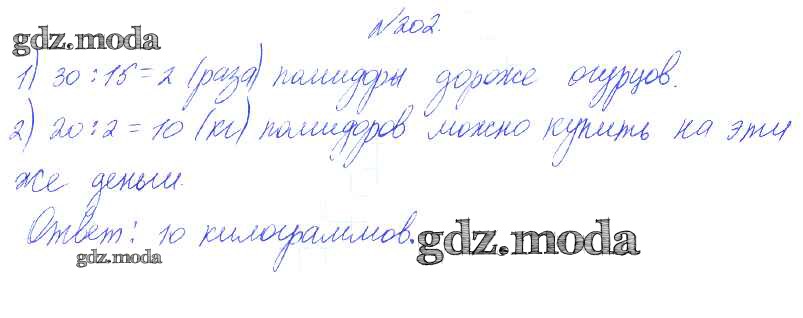 №202.
gdz.moda
1) 30:15=2 (раза) помидоры дороже огурцов.
2) 20:2=10 (кг) помидоров можно купить на эти
же деньги.
Ответ: 10 килограммов.
gdz.moda
gdz.moda